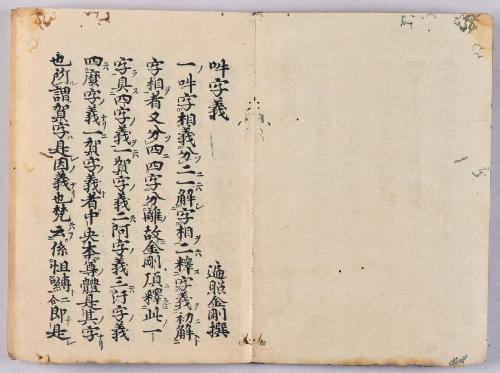 吽字義
遍照金剛撰
一吽字相義分二一解字相二釋字義初解
字相者又分四四字分離故金剛頂釋此一
字具四字義一賀字義二阿字義三汙字義
四麼字義一賀字義者中央本尊體是其字
也所謂賀字是因義也梵云係怛縛二合即是